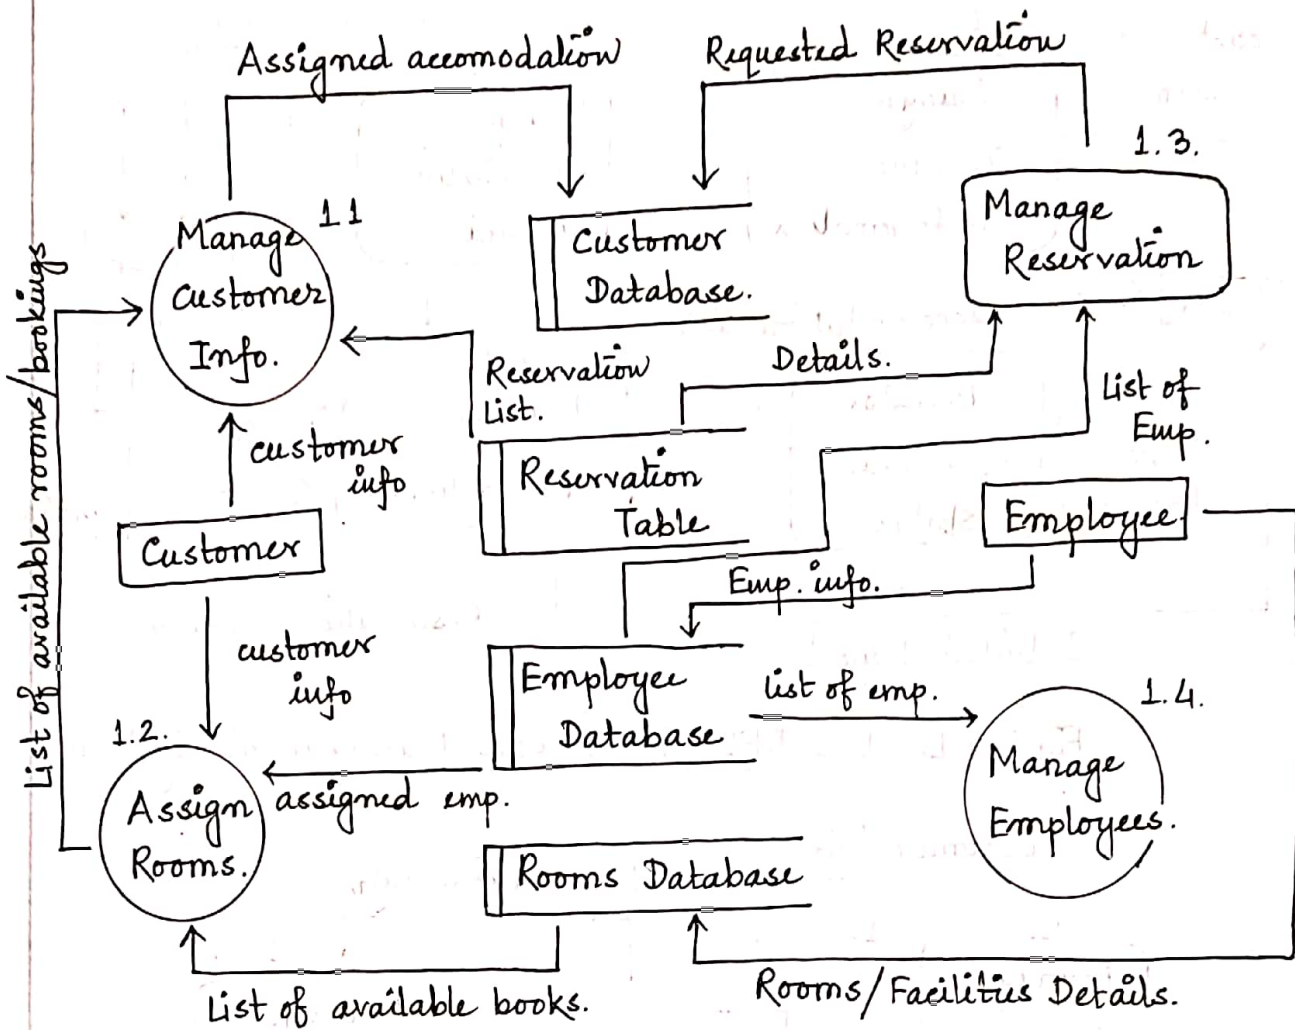 Assigned accomodation
Requested Reservation
1.3.
1 1
Manage
Customer
Info.
Customer
Database.
Manage
Reservation
List of available rooms/bookings
Reservation
List.
Details.
List of
Emp.
customer
info
Reservation
Table
Employee
Customer
Emp. info.
customer
info
Employee
Database
list of emp.
1.4.
Manage
Employees.
1.2.
Assign
Rooms.
assigned emp.
Rooms Database
List of available books.
Rooms/Facilities Details.